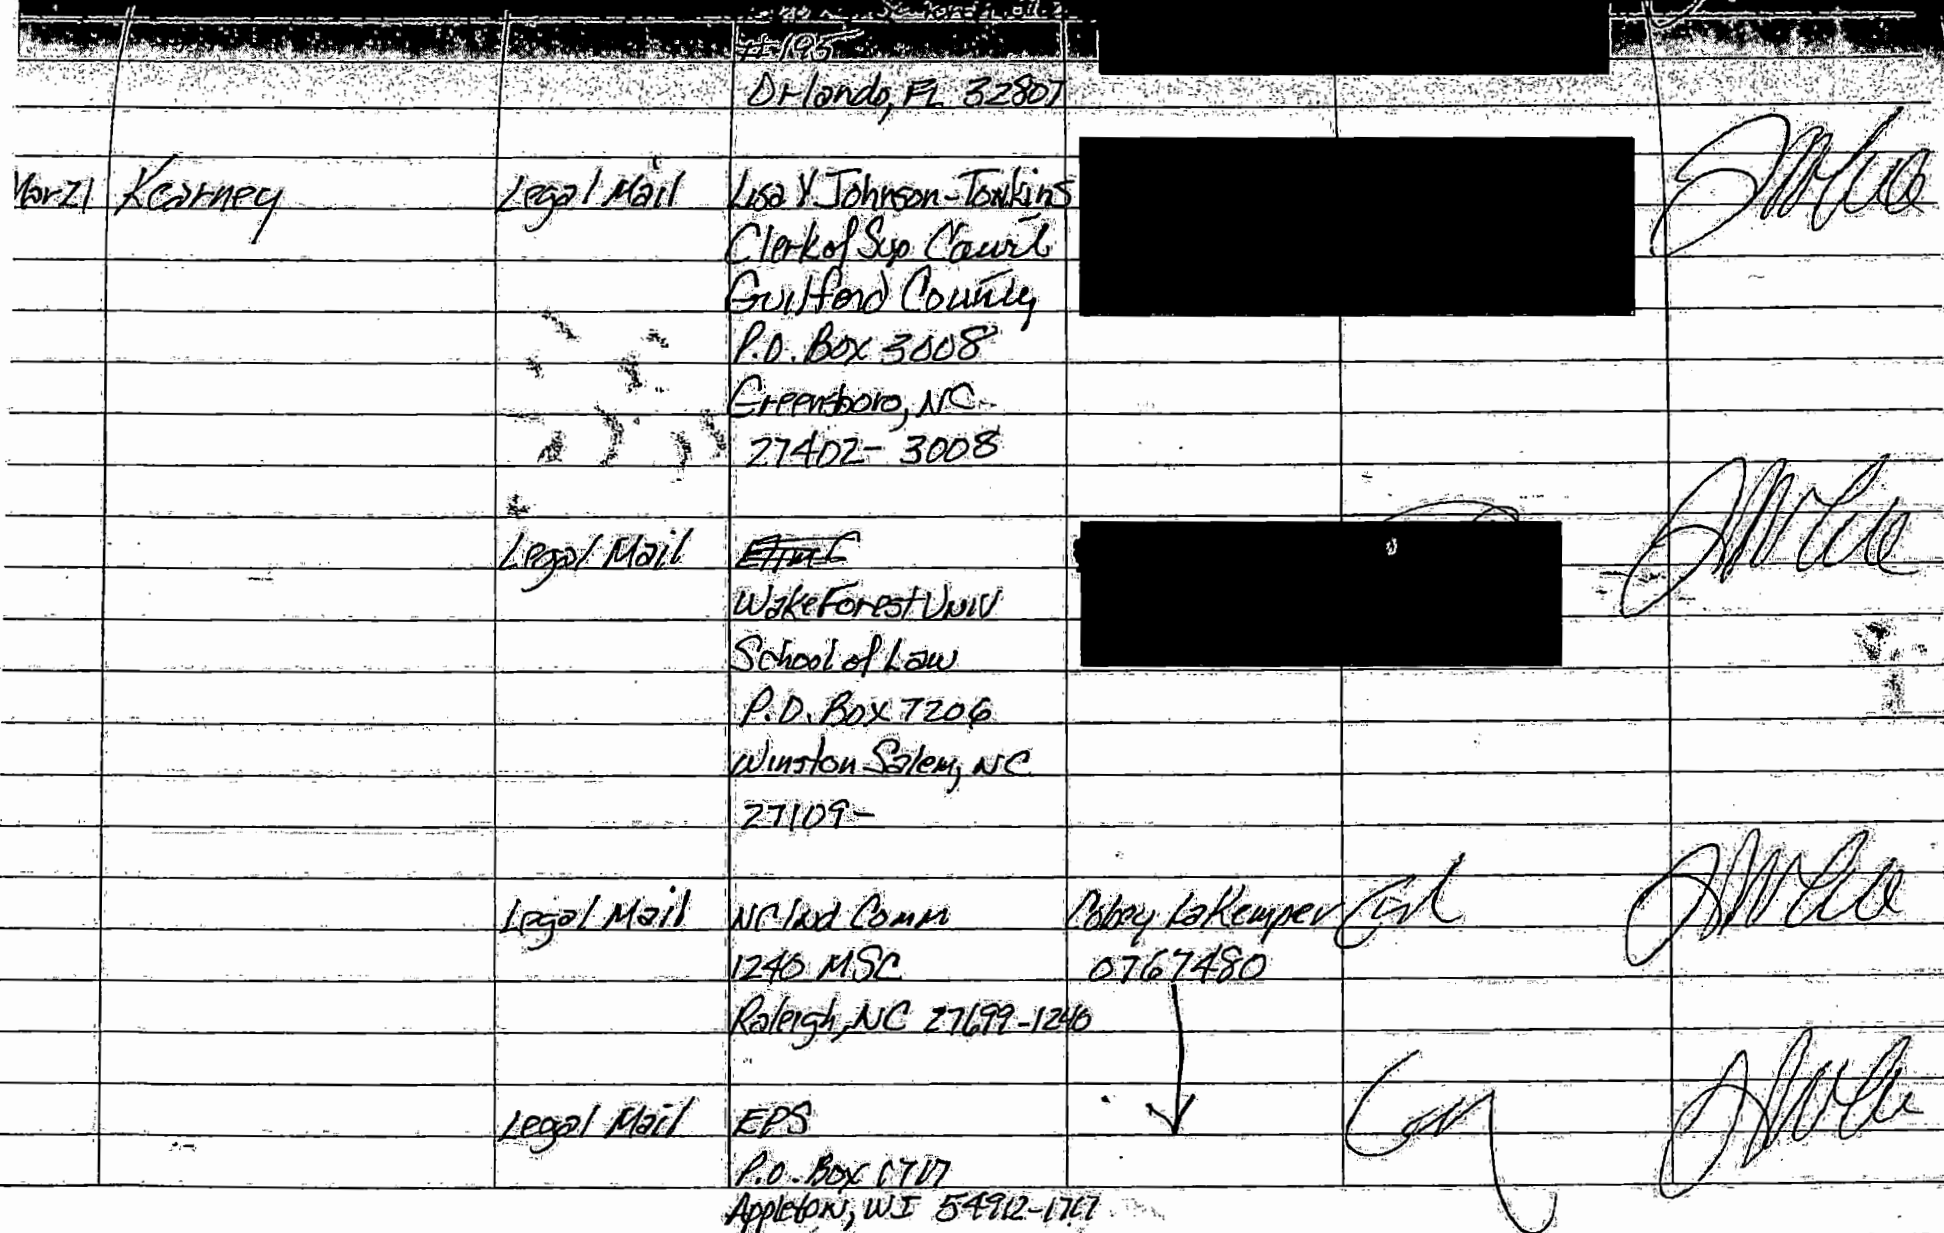 #195
Orlando, FL 32807
Mar 21 Kearney Legal Mail Lisa Y Johnson-Tonkins
Clerk of Sup Court
Guilford County
P.O. Box 3008
Greensboro, NC
27402-3008
Legal Mail
Wake Forest Univ
School of Law
P.O. Box 7206
Winston Salem, NC
27109-
Legal Mail NC Ind Comm Cobey LaKemper
1240 MSC 0767480
Raleigh, NC 27699-1240
Legal Mail EPS
P.O. Box 1717
Appleton, WI 54912-1717